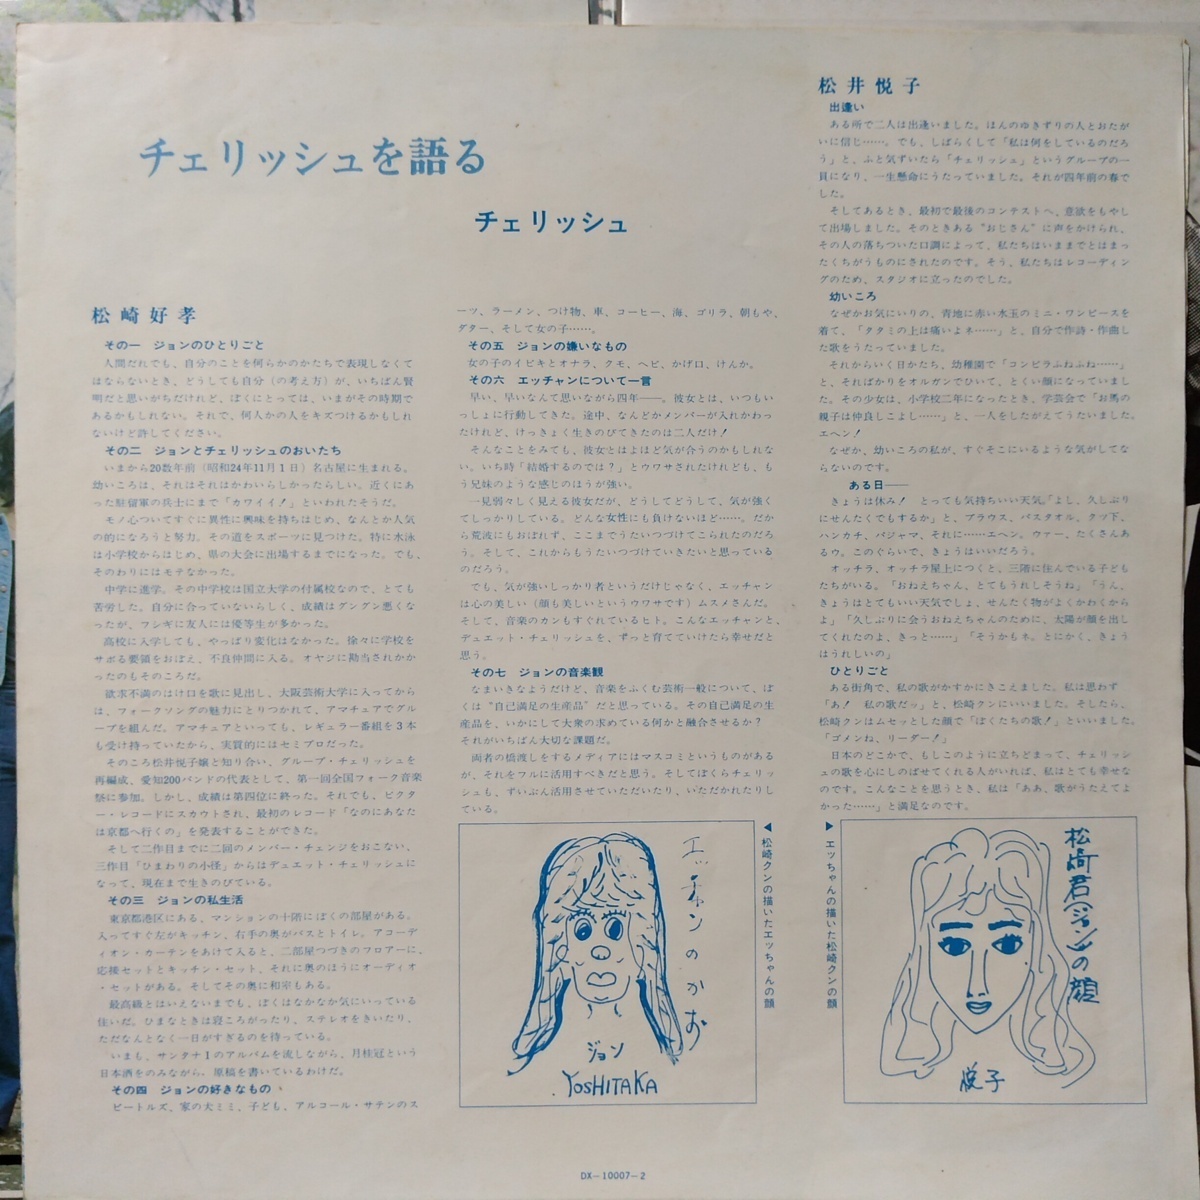 チェリッシュを語る
チェリッシュ
松崎好孝
その一 ジョンのひとりごと
人間だれでも、自分のことを何らかのかたちで表現しなくて
はならないとき、どうしても自分（の考え方）が、いちばん賢
明だと思いがちだけれど、ぼくにとっては、いまがその時期で
あるかもしれない。それで、何人かの人をキズつけるかもしれ
ないけど許してください。
その二 ジョンとチェリッシュのおいたち
いまから20数年前（昭和24年11月1日）名古屋に生まれる。
幼いころは、それはそれはかわいらしかったらしい。近くにあ
った駐留軍の兵士にまで「カワイイ！」といわれたそうだ。
モノ心ついてすぐに異性に興味を持ちはじめ、なんとか人気
の的になろうと努力。その道をスポーツに見つけた。特に水泳
は小学校からはじめ、県の大会に出場するまでになった。でも、
そのわりにはモテなかった。
中学に進学。その中学校は国立大学の付属校なので、とても
苦労した。自分に合っていないらしく、成績はグングン悪くな
ったが、フシギに友人には優等生が多かった。
高校に入学しても、やっぱり変化はなかった。徐々に学校を
サボる要領をおぼえ、不良仲間に入る。オヤジに勘当されかか
ったのもそのころだ。
欲求不満のはけ口を歌に見出し、大阪芸術大学に入ってから
は、フォークソングの魅力にとりつかれて、アマチュアでグル
ープを組んだ。アマチュアといっても、レギュラー番組を3本
も受け持っていたから、実質的にはセミプロだった。
そのころ松井悦子嬢と知り合い、グループ・チェリッシュを
再編成、愛知200バンドの代表として、第一回全国フォーク音楽
祭に参加。しかし、成績は第四位に終った。それでも、ビクタ
ー・レコードにスカウトされ、最初のレコード「なのにあなた
は京都へ行くの」を発表することができた。
そして二作目までに二回のメンバー・チェンジをおこない、
三作目「ひまわりの小径」からはデュエット・チェリッシュに
なって、現在まで生きのびている。
その三 ジョンの私生活
東京都港区にある、マンションの十階にぼくの部屋がある。
入ってすぐ左がキッチン、右手の奥がバスとトイレ。アコーデ
ィオン・カーテンをあけて入ると、二部屋つづきのフロアーに、
応接セットとキッチン・セット、それに奥のほうにオーディオ
・セットがある。そしてその奥に和室もある。
最高級とはいえないまでも、ぼくはなかなか気にいっている
住いだ。ひまなときは寝ころがったり、ステレオをきいたり、
ただなんとなく一日がすぎるのを待っている。
いまも、サンタナIのアルバムを流しながら、月桂冠という
日本酒をのみながら、原稿を書いているわけだ。
その四 ジョンの好きなもの
ビートルズ、家の犬ミミ、子ども、アルコール・サテンのス
ーツ、ラーメン、つけ物、車、コーヒー、海、ゴリラ、朝もや、
グター、そして女の子……。
その五 ジョンの嫌いなもの
女の子のイビキとオナラ、クモ、ヘビ、かげ口、けんか。
その六 エッチャンについて一言
早い、早いなんて思いながら四年――。彼女とは、いつもい
っしょに行動してきた。途中、なんどかメンバーが入れかわっ
たけれど、けっきょく生きのびてきたのは二人だけ！
そんなことをみても、彼女とはよほど気が合うのかもしれな
い。いち時「結婚するのでは？」とウワサされたけれども、も
う兄妹のような感じのほうが強い。
一見弱々しく見える彼女だが、どうしてどうして、気が強く
てしっかりしている。どんな女性にも負けないほど……。だか
ら荒波にもおぼれず、ここまでうたいつづけてこられたのだろ
う。そして、これからもうたいつづけていきたいと思っている
のだろう。
でも、気が強いしっかり者というだけじゃなく、エッチャン
は心の美しい（顔も美しいというウワサです）ムスメさんだ。
そして、音楽のカンもすぐれているヒト。こんなエッチャンと、
デュエット・チェリッシュを、ずっと育てていけたら幸せだと
思う。
その七 ジョンの音楽観
なまいきなようだけど、音楽をふくむ芸術一般について、ぼ
くは“自己満足の生産品”だと思っている。その自己満足の生
産品を、いかにして大衆の求めている何かと融合させるか？
それがいちばん大切な課題だ。
両者の橋渡しをするメディアにはマスコミというものがある
が、それをフルに活用すべきだと思う。そしてぼくらチェリッ
シュも、ずいぶん活用させていただいたり、いただかれたりし
ている。
松井悦子
出逢い
ある所で二人は出逢いました。ほんのゆきずりの人とおたが
いに信じ……。でも、しばらくして「私は何をしているのだろ
う」と、ふと気ずいたら「チェリッシュ」というグループの一
員になり、一生懸命にうたっていました。それが四年前の春で
した。
そしてあるとき、最初で最後のコンテストへ、意欲をもやし
て出場しました。そのときある“おじさん”に声をかけられ、
その人の落ちついた口調によって、私たちはいままでとはまっ
たくちがうものにされたのです。そう、私たちはレコーディン
グのため、スタジオに立ったのでした。
幼いころ
なぜかお気にいりの、青地に赤い水玉のミニ・ワンピースを
着て、「タタミの上は痛いよネ……」と、自分で作詩・作曲し
た歌をうたっていました。
それからいく日かたち、幼稚園で「コンピラふねふね……」
と、そればかりをオルガンでひいて、とくい顔になっていまし
た。その少女は、小学校二年になったとき、学芸会で「お馬の
親子は仲良しこよし……」と、一人をしたがえてうたいました。
エヘン！
なぜか、幼いころの私が、すぐそこにいるような気がしてな
らないのです。
ある日――
きょうは休み！ とっても気持ちいい天気。「よし、久しぶり
にせんたくでもするか」と、ブラウス、バスタオル、クツ下、
ハンカチ、パジャマ、それに……エヘン。ウァー、たくさんあ
るウ。このぐらいで、きょうはいいだろう。
オッチラ、オッチラ屋上につくと、三階に住んでいる子ども
たちがいる。「おねえちゃん、とてもうれしそうね」「うん、
きょうはとてもいい天気でしょ、せんたく物がよくかわくから
よ」「久しぶりに会うおねえちゃんのために、太陽が顔を出し
てくれたのよ、きっと……」「そうかもネ。とにかく、きょう
はうれしいの」
ひとりごと
ある街角で、私の歌がかすかにきこえました。私は思わず
「あ！ 私の歌だッ」と、松崎クンにいいました。そしたら、
松崎クンはムセッとした顔で「ぼくたちの歌！」といいました。
「ゴメンね、リーダー！」
日本のどこかで、もしこのように立ちどまって、チェリッシ
ュの歌を心にしのばせてくれる人がいれば、私はとても幸せな
のです。こんなことを思うとき、私は「ああ、歌がうたえてよ
かった……」と満足なのです。
エッチャンのかお
ジョン
YOSHITAKA
▲松崎クンの描いたエッちゃんの顔
▼エッちゃんの描いた松崎クンの顔
松崎君(ジョン)の顔
悦子
DX-10007-2